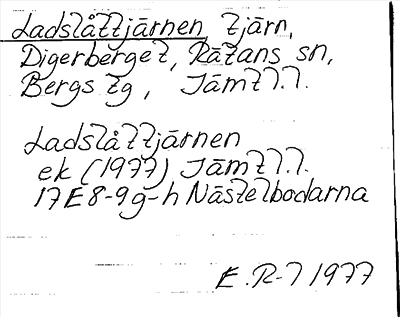 Ladslåttjärnen, tjärn,
Digerberget, Rätans sn,
Bergs tg, Jämtl.l.
Ladslåttjärnen
ek (1977) Jämtl.l.
17E8-9g-h Nästelbodarna
E.R-l 1977